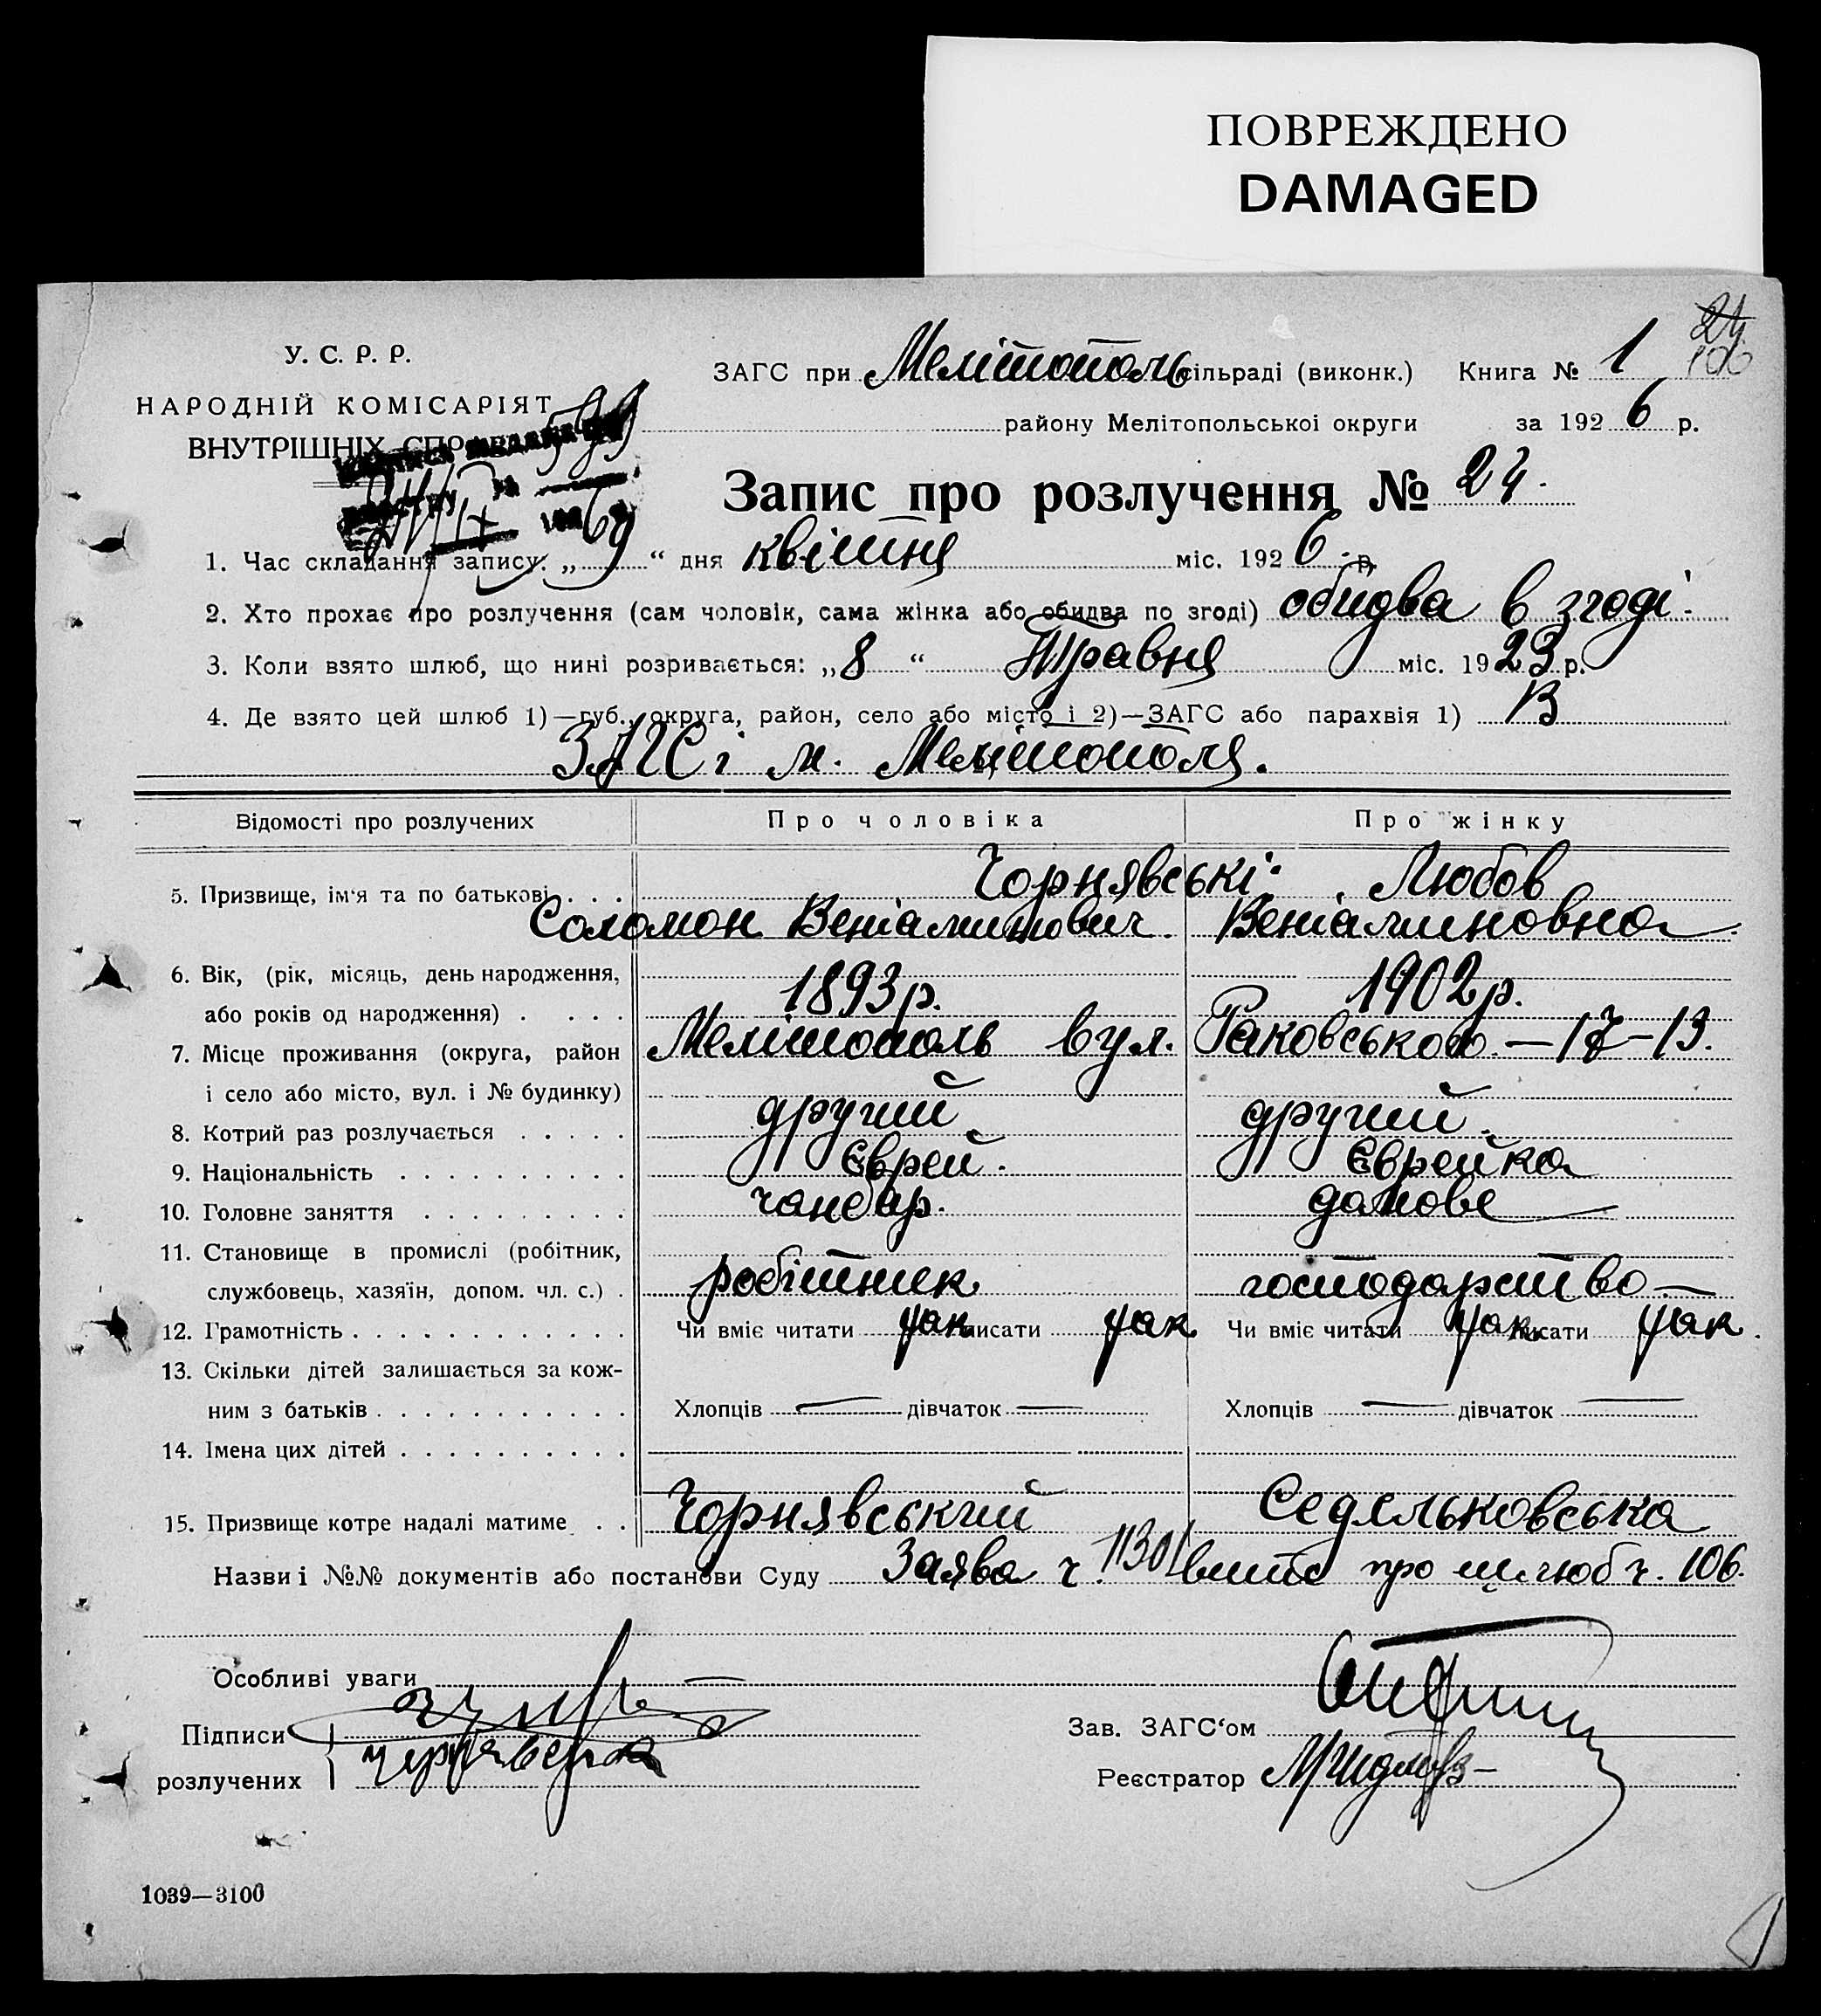 ПОВРЕЖДЕНО
DAMAGED
У. С. Р. Р.
НАРОДНІЙ КОМІСАРІЯТ
ВНУТРІШНІХ
ЗАГС при Мелітополь сільраді (виконк.) Книга № 1
району Мелітопольської округи за 1926 р.
Запис про розлучення № 24.
1. Час складання запису: „9“ дня квітня міс. 1926 р.
2. Хто прохає про розлучення (сам чоловік, сама жінка або обидва по згоді) обидва в згоді.
3. Коли взято шлюб, що нині розривається: „8“ Травня міс. 1923 р.
4. Де взято цей шлюб 1)—губ., округа, район, село або місто і 2)—ЗАГС або парахвія 1) В
ЗАГСі м. Мелітополя.
Відомості про розлучених Про чоловіка Про жінку
5. Призвище, ім'я та по батькові Чорнявські: Любов
Соломон Веніаминович. Веніаминовна
6. Вік, (рік, місяць, день народження, 1893 р. 1902 р.
або років од народження)
7. Місце проживання (округа, район Мелітополь вул. Раковського — 17 — 13.
і село або місто, вул. і № будинку)
8. Котрий раз розлучається другий другий.
9. Національність Єврей. Єврейка
10. Головне заняття чинбар. домове
11. Становище в промислі (робітник,
службовець, хазяїн, допом. чл. с.) робітник господарство —
12. Грамотність Чи вміє читати так писати так Чи вміє читати так писати так.
13. Скільки дітей залишається за кож-
ним з батьків Хлопців — дівчаток — Хлопців — дівчаток —
14. Імена цих дітей
15. Призвище котре надалі матиме Чорнявський Седельковська
Назви і №№ документів або постанови Суду Заява ч. 11301 про шлюб ч. 106.
Особливі уваги
Підписи
розлучених
Зав. ЗАГС'ом
Реєстратор
1039—3100